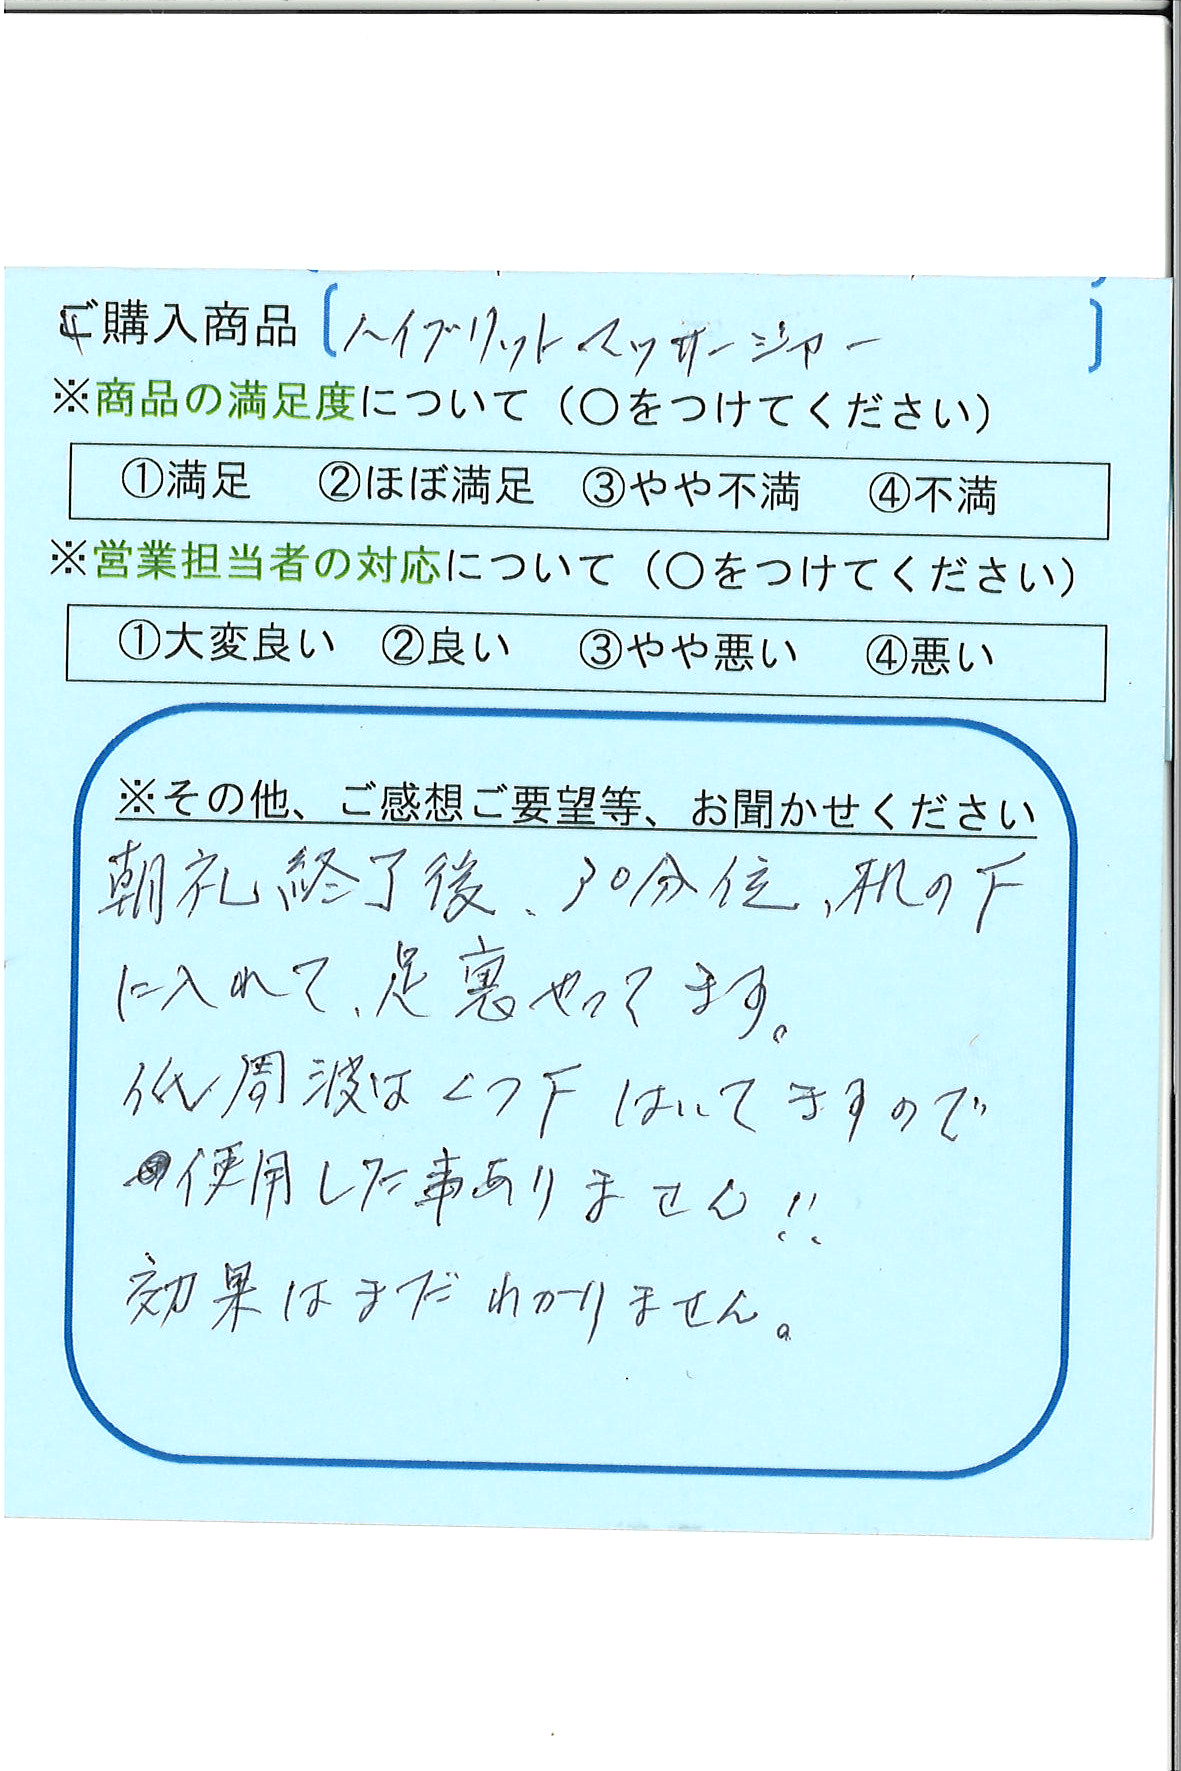 ご購入商品 ハイブリットマッサージャー
※商品の満足度について（〇をつけてください）
①満足 ②ほぼ満足 ③やや不満 ④不満
※営業担当者の対応について（〇をつけてください）
①大変良い ②良い ③やや悪い ④悪い
※その他、ご感想ご要望等、お聞かせください
朝礼終了後、30分位、机の下
に入れて、足裏やってます。
低周波はくつ下はいてますので
使用した事ありません!!
効果はまだわかりません。